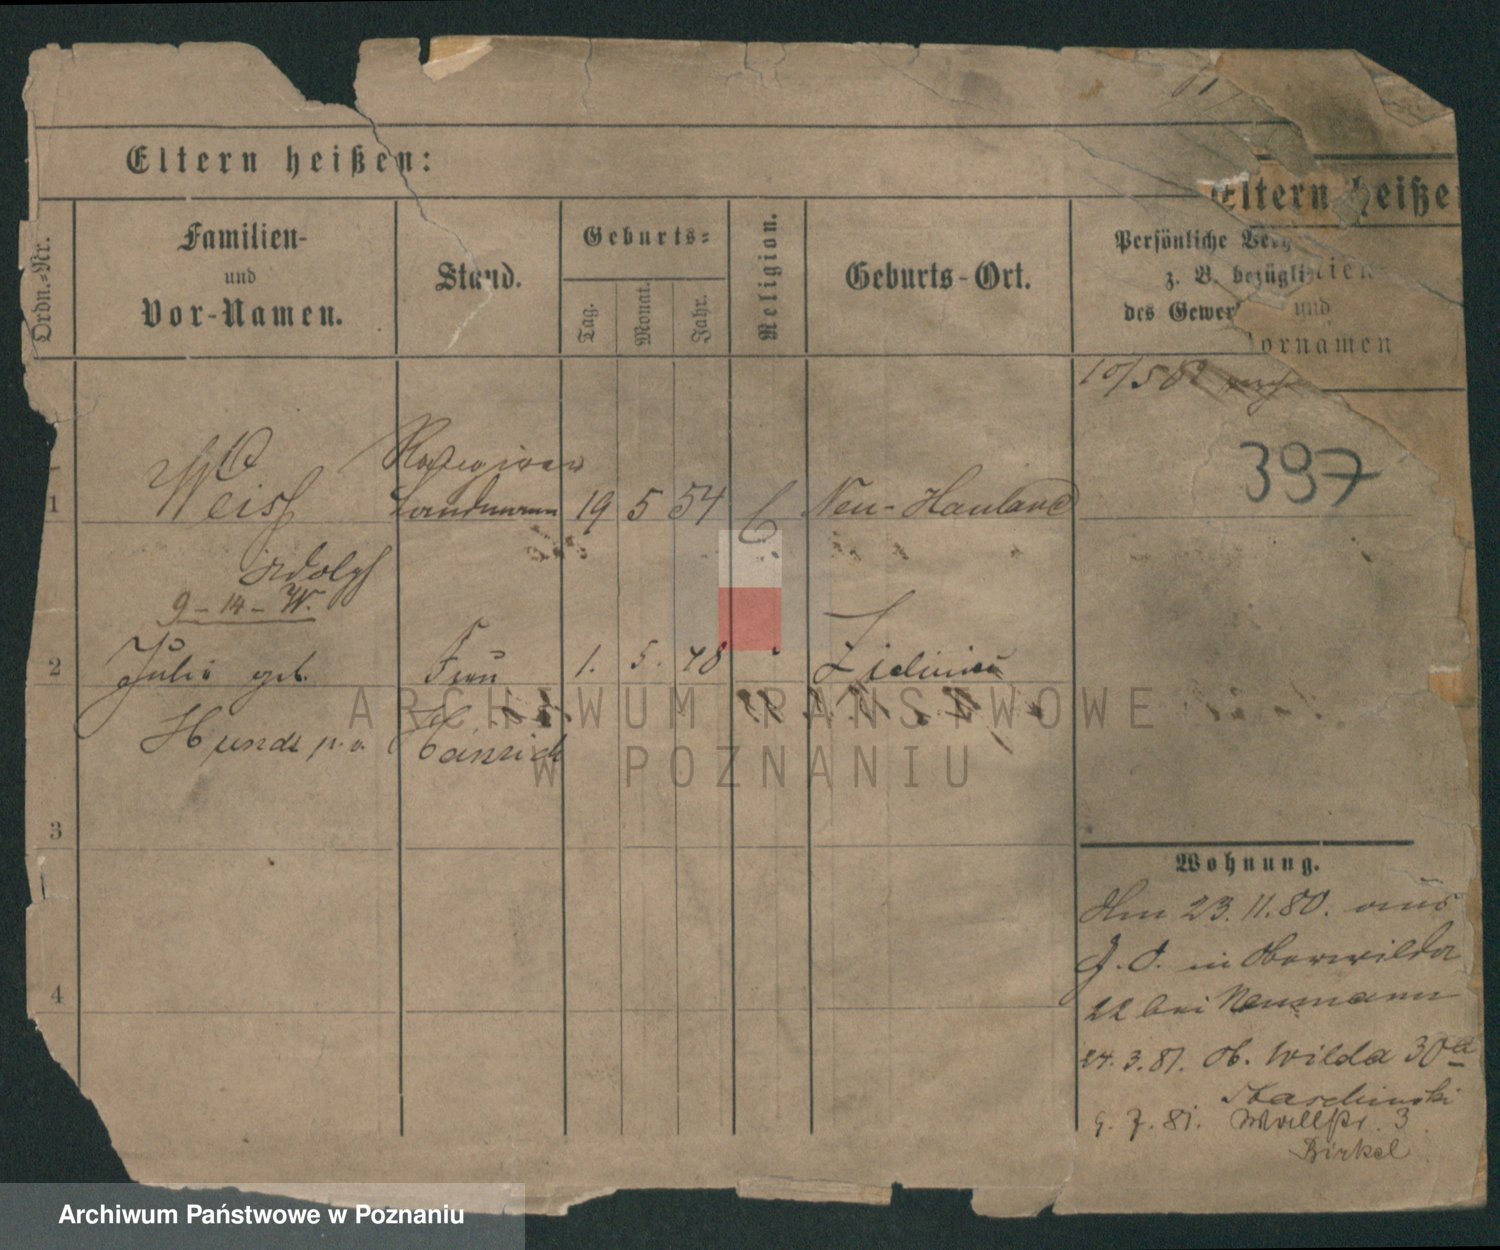 Eltern heißen:
Eltern heiße
Ordn.-Nr.
Familien-
und
Vor-Namen.
Stand.
Geburts-
Tag.
Monat.
Jahr.
Religion.
Geburts-Ort.
Persönliche
z. B. bezügli
des Gewer
und
ornamen
10/5 82
397
1 Weiss Landmann 19 5 54 Neu-Hauland
Adolph
9-14-W.
2 Julie geb. Frau 1. 5. 48
Heinrich
3
4
Wohnung.
Am 23.11.80. aus
J. O. in Oberwilda
22 bei Neumann
24.3.81. Ob. Wilda 30a
9.7.81. Wallstr. 3
Birkel
ARCHIWUM PAŃSTWOWE
W POZNANIU
Archiwum Państwowe w Poznaniu